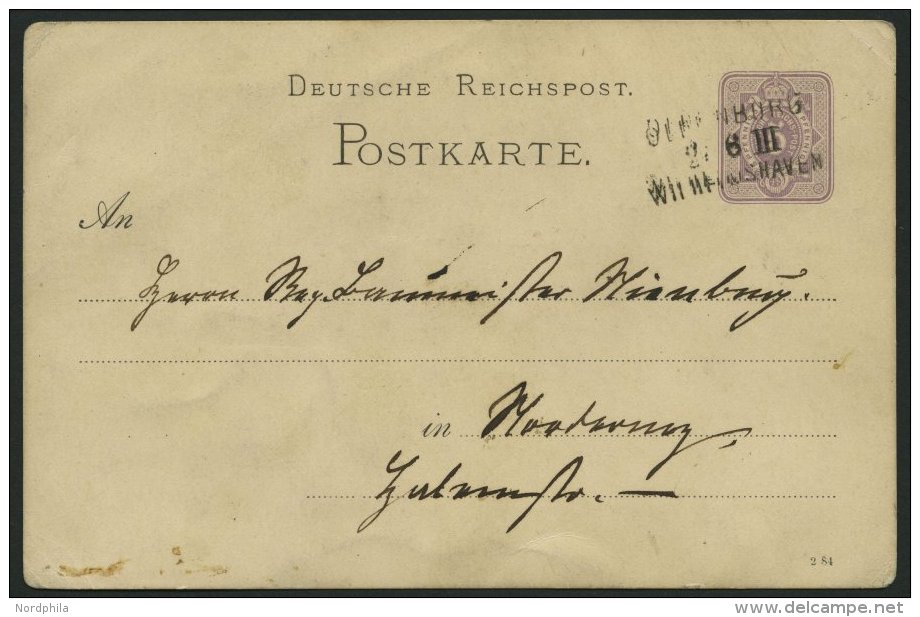 DEUTSCHE REICHSPOST.
POSTKARTE.
OLDENBURG
2 6 III
WILHELMSHAVEN
An
Herrn Reg. Baumeister Nienburg.
in Norderney
2 84
Nordphila
www.delcampe.net